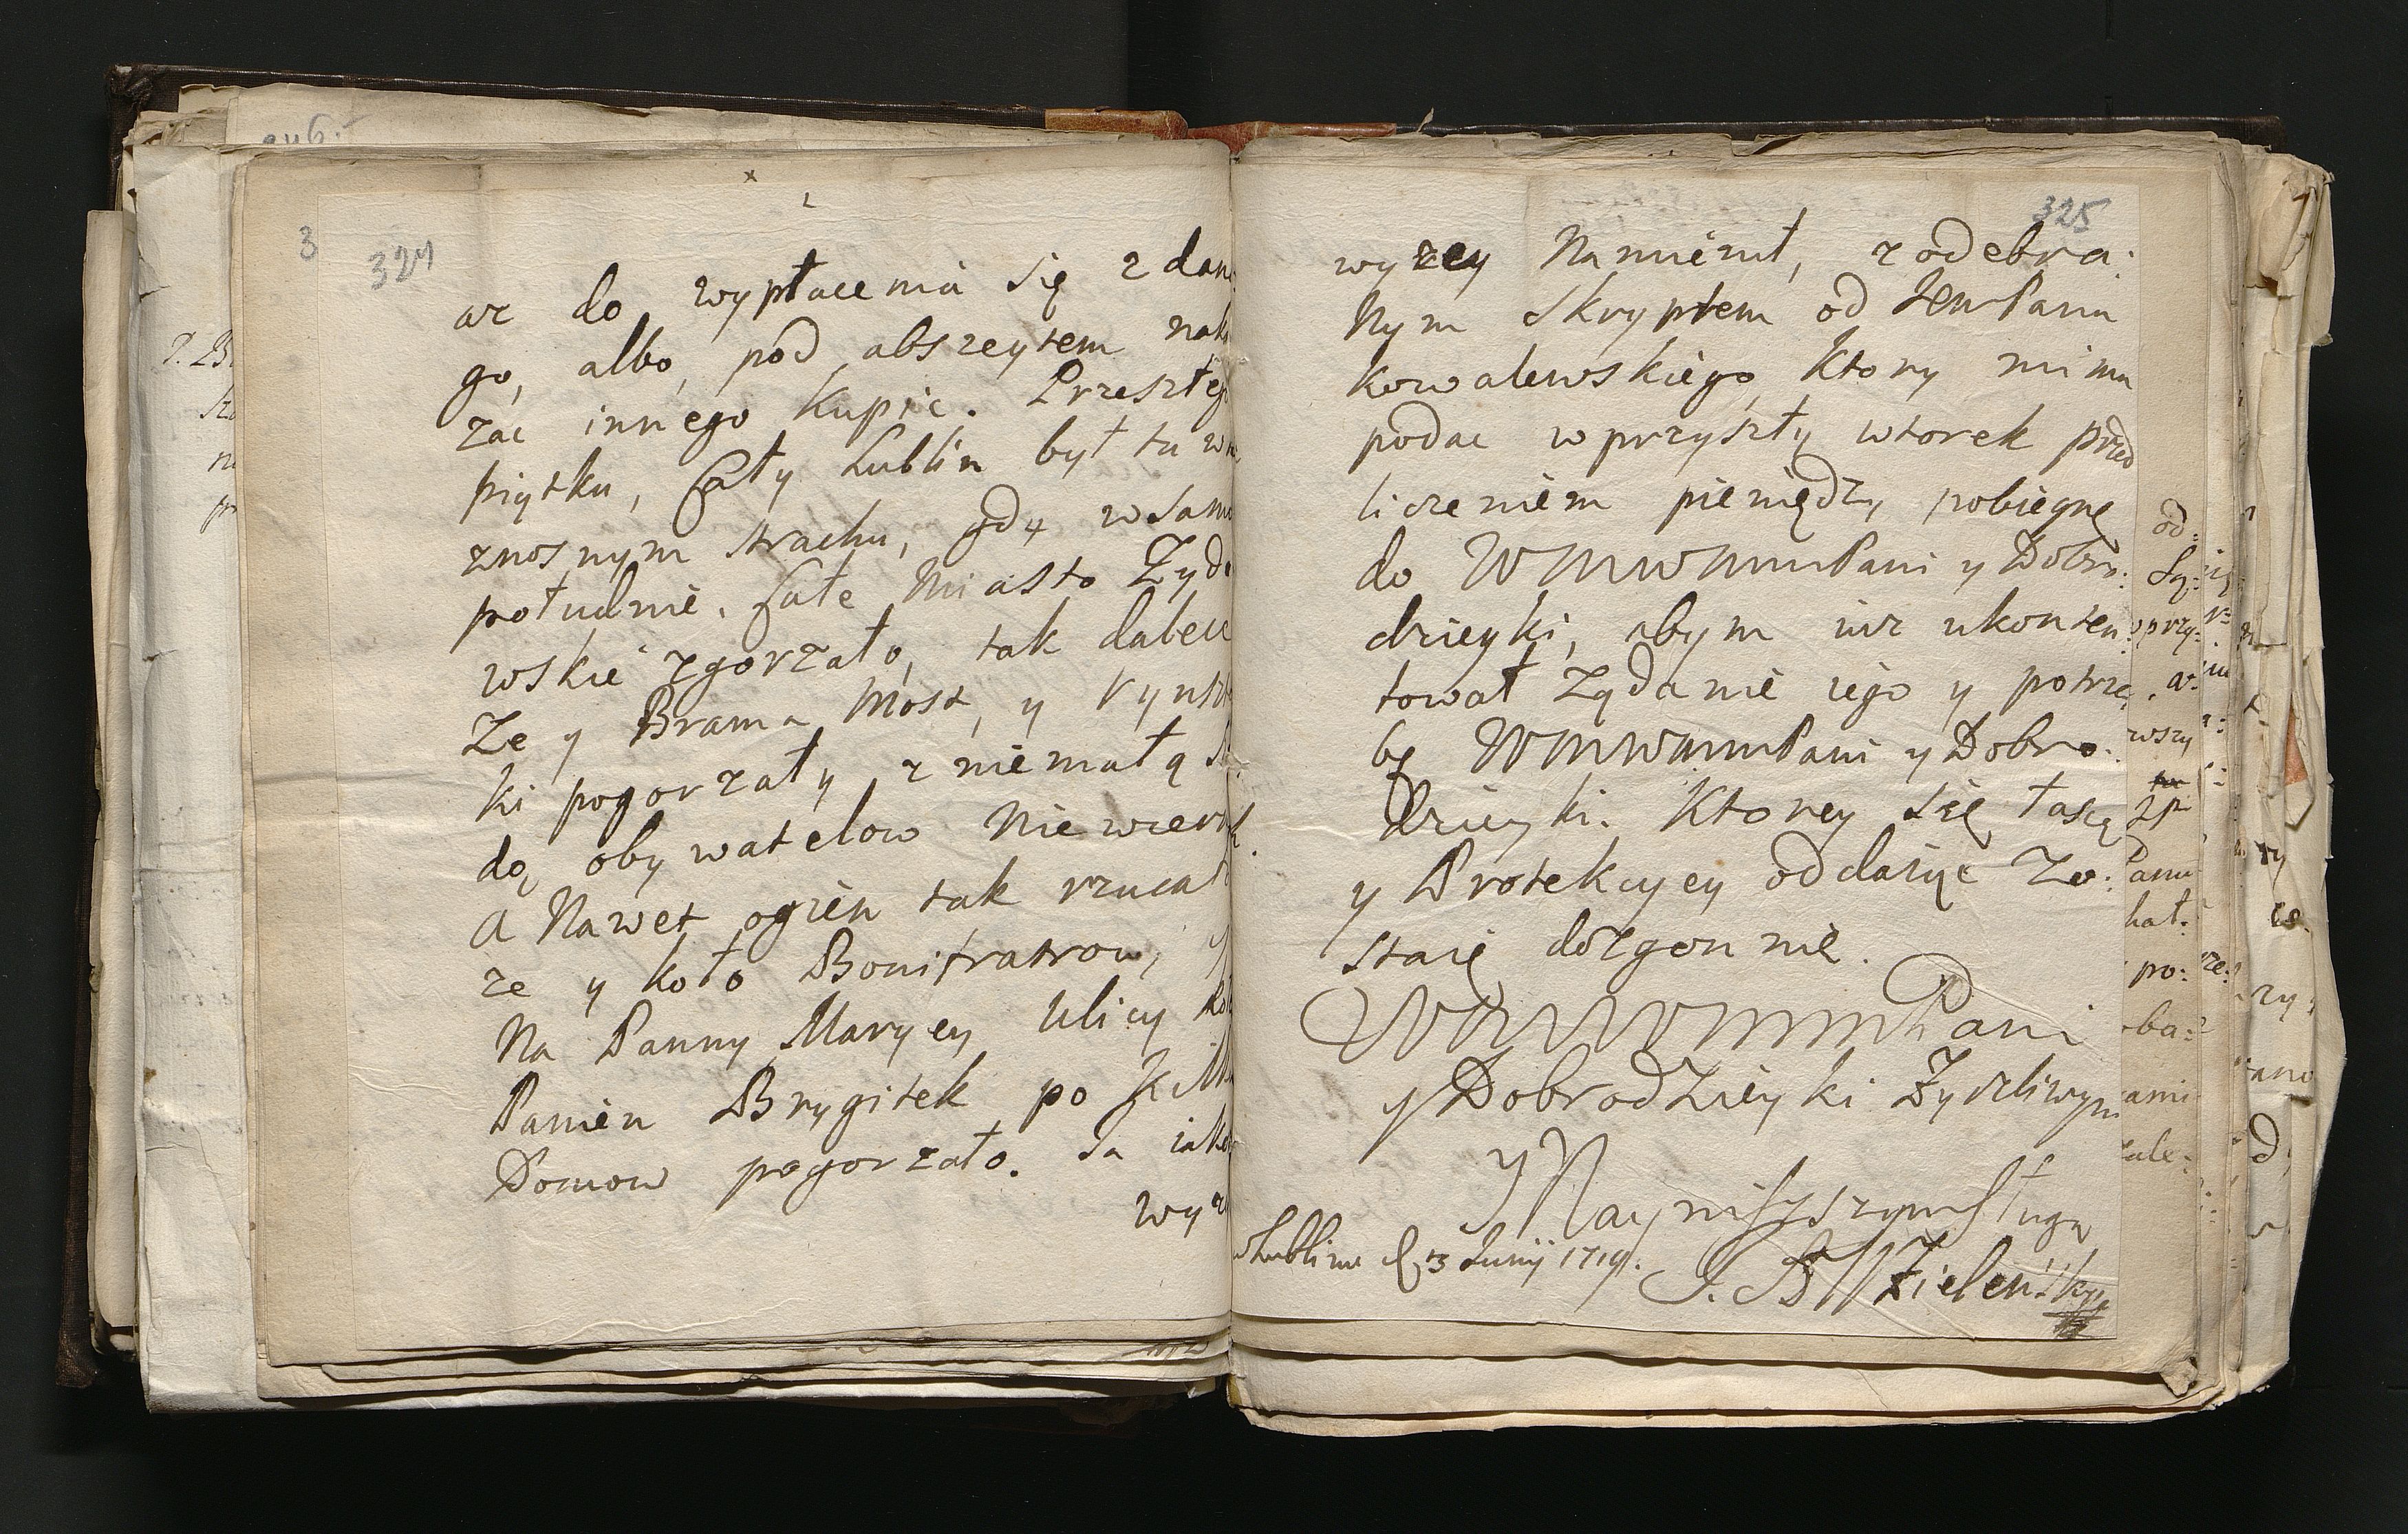 246.
3
324
az do wypłacenia się zdane
go, albo, pod abszeytem naka
zac innego kupic. Przeszłego
piątku, Cały Lublin był tu w
znosnym strachu, gdy w samo
południe. Całe Miasto Zydo
wskie zgorzało, tak dalece
Ze y Brama Most, y Rynsz
ki pogorzały z niemałą
dą obywatelow Niewier
A Nawet ogien tak rzucał
ze y koło Bonifratrow, y
Na Panny Maryey Ulicy
Panien Brygitek po kilka
Domow pogorzało. Ja iako
wyz
325
wyzey Namienił, z odebra:
Nym Skryptem od JEMPana
Kowalewskiego, Ktory mi ma
podac w przyszły wtorek przed
liczeniem pieniędzy, pobiegnę
do WMWMMPani y Dobro:
dzieyki, abym iuz ukonten:
tował Ządanie iego y potrze
bę WMWMMPani y Dobro:
dzieyki. Ktorey się łascę
y Protekcyey oddaiąc Zo:
staię dozgonnie.
WMWMMPani
y Dobrodzieyki Zyczliwym
y Nayniszszym Sługą
w Lublinie d. 3 Junij 1719.
J. B. Zielenskyi